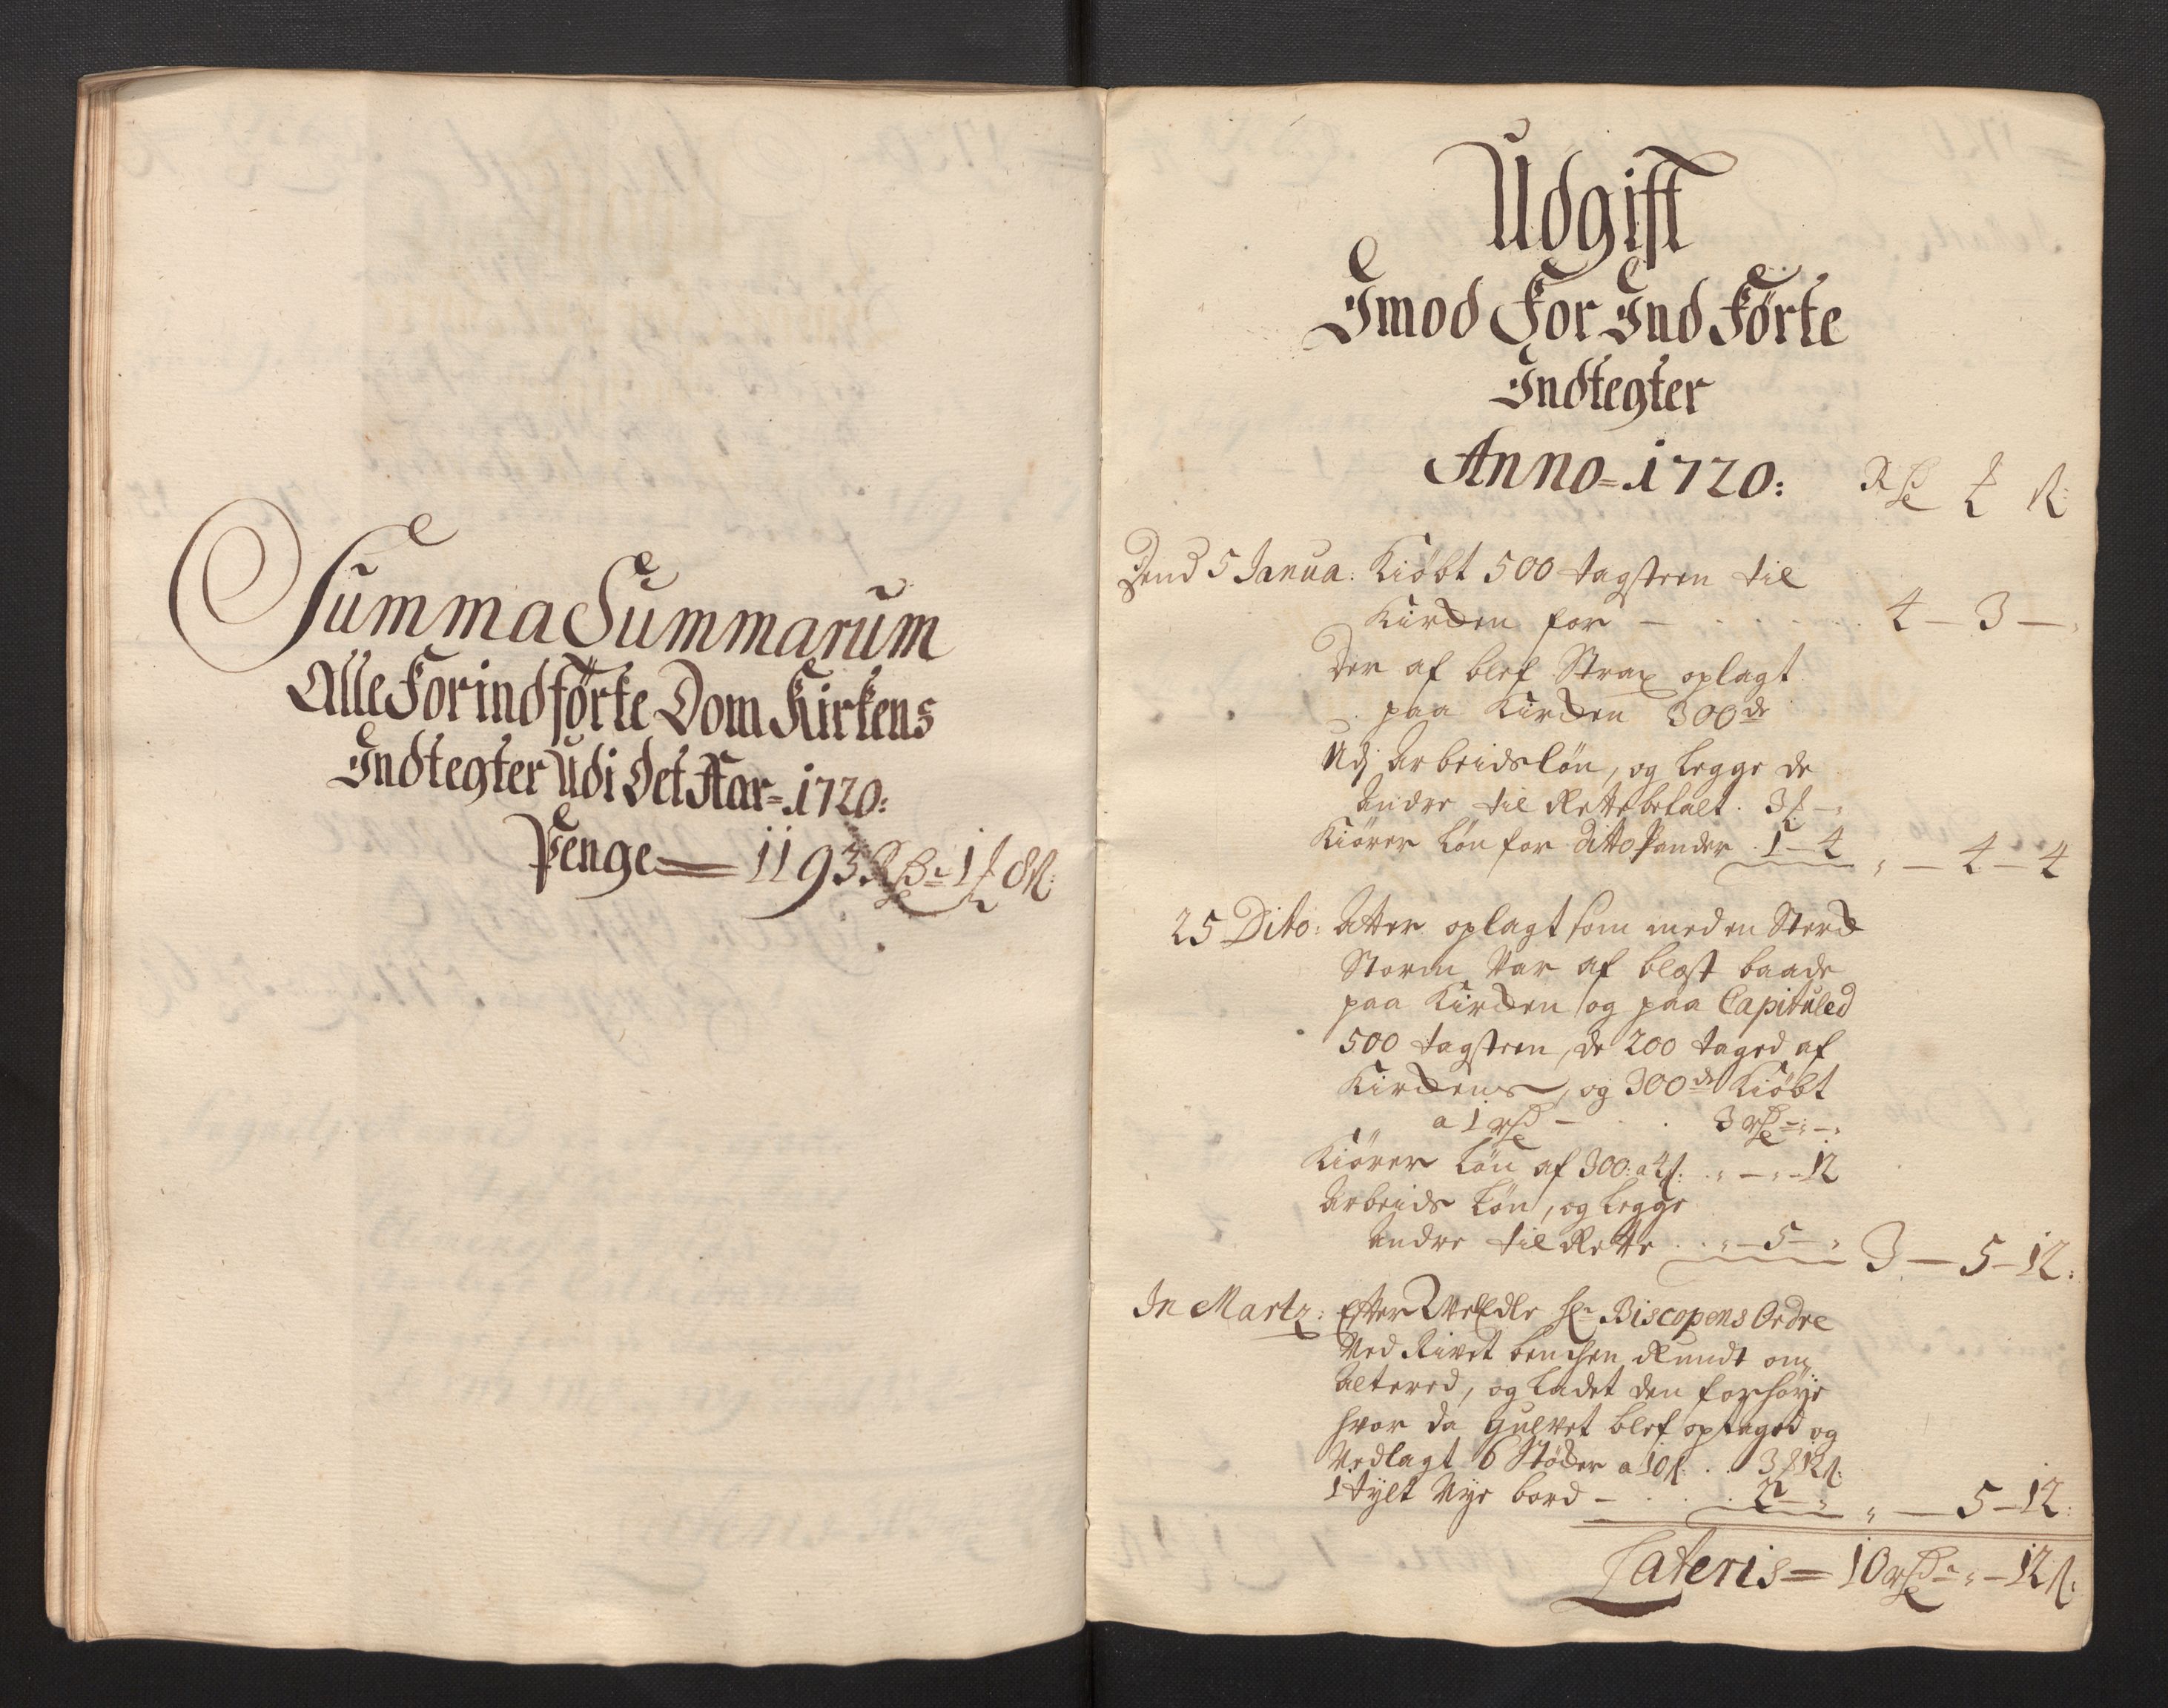 Summa Summarum
Alle For indförte Dom Kirkens
Indtegter Udi Det Aar = 1720:
Penge = 1193 Rdr 1 ¥ 8 ß:
Udgift
Imod For Ind Förte
Indtegter
Anno = 1720:
Rdr ¥ ß:
Dend 5 Janua: Kiöbt 500 tagsteen til
Kircken for — 4 — 3 —
Der af blef Strax oplagt
paa Kircken 300de
Udj Arbeidslön, og legge de
andre til Rette betalt . 3 ¥ —
Kiörer Lön for ditto Pander . 1 — 4 „ — 4 — 4
25 Dito: Atter oplagt som med en Sterck
Storm Var af blæst baade
paa Kircken og paa Capituled
500 tagsteen, de 200 taged af
Kirckens, og 300de Kiöbt
a 1 rdr — 3 rdr — „ — „
Kiörer Lön af 300: a 4 ß: . „ — „ — 12
Arbeids Lön, og legge
andre til Rette . . „ — 5 — „ 3 — 5 — 12:
In Martz: Efter VelEdle Hr Biscopens Ordre
Ved Rivet benchen Rundt om
Altered, og Ladet den forhöye
hvor da gulvet blef optaged og
Vedlagt 6 Stöcker a 10 ß: . . 3 ¥ 12 ß:
1 tylt Nye bord — . . . 2 — „ „ — 5 — 12:
Lateris = 10 rdr — „ — 12 ß: